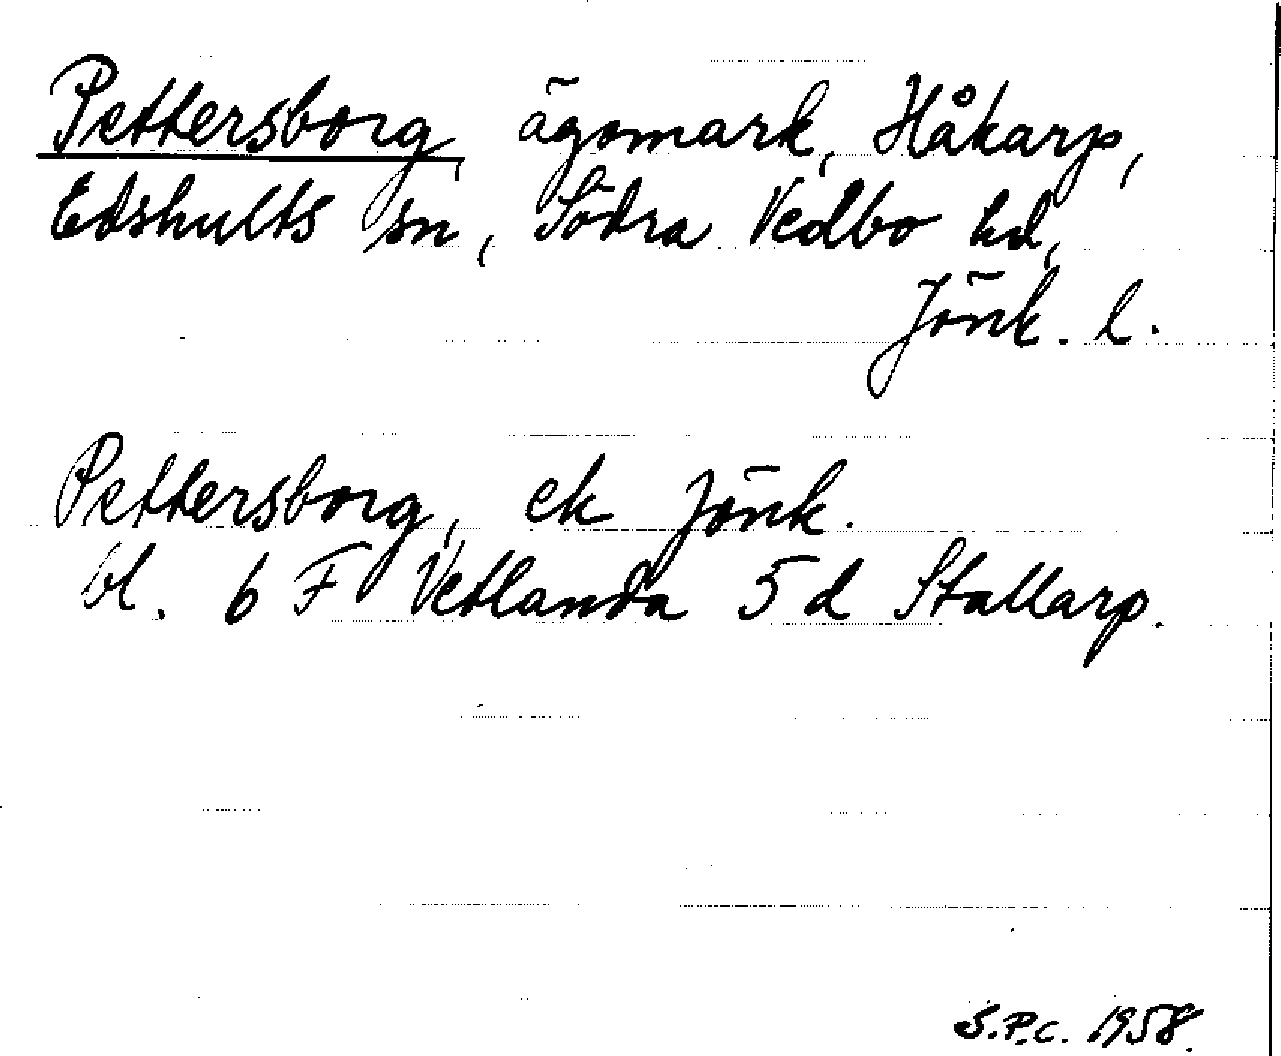 Pettersborg, ägomark, Håkarp,
Edshults sn, Södra Vedbo hd,
Jönk. l.
Pettersborg, ek Jönk.
bl. 6 F Vetlanda 5 d Stallarp.
S.P.C. 1958.